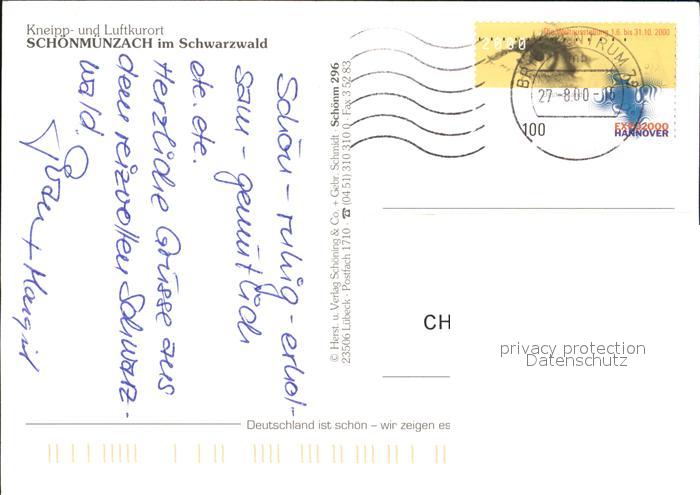 Kneipp- und Luftkurort
SCHÖNMÜNZACH im Schwarzwald
Schön - ruhig - erhol-
sam - gemütlich
etc. etc.
Herzliche Grüsse aus
dem reizvollen Schwarz-
wald.
+ Margit
© Herst. u. Verlag Schöning & Co. + Gebr. Schmidt · Schönm 296
23506 Lübeck · Postfach 1710 · ☎ (04 51) 310 310 · Fax 3 52 83
Die Weltausstellung 1.6. bis 31.10. 2000
2000
BRIEFZENTRUM 72
27-8.00-16
100
EXPO2000
HANNOVER
CH
privacy protection
Datenschutz
Deutschland ist schön – wir zeigen es